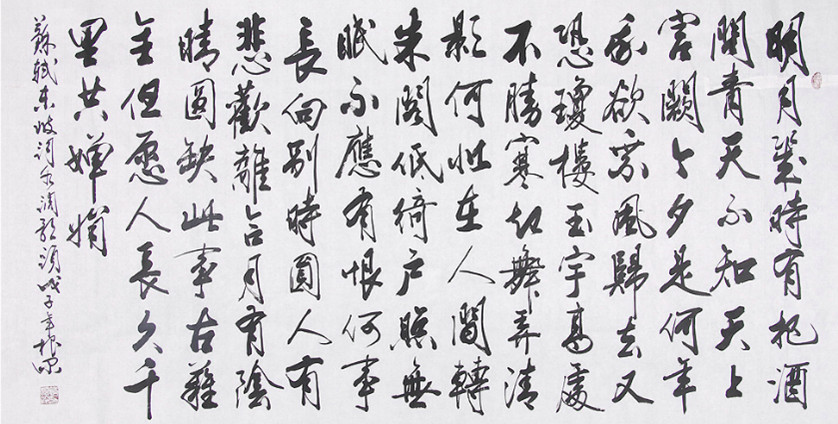 明月幾時有把酒
問青天不知天上
宮闕今夕是何年
我欲乘風歸去又
恐瓊樓玉宇高處
不勝寒起舞弄清
影何似在人間轉
朱閣低綺戶照無
眠不應有恨何事
長向別時圓人有
悲歡離合月有陰
晴圓缺此事古難
全但愿人長久千
里共嬋娟
蘇軾東坡詞水調歌頭戊子年